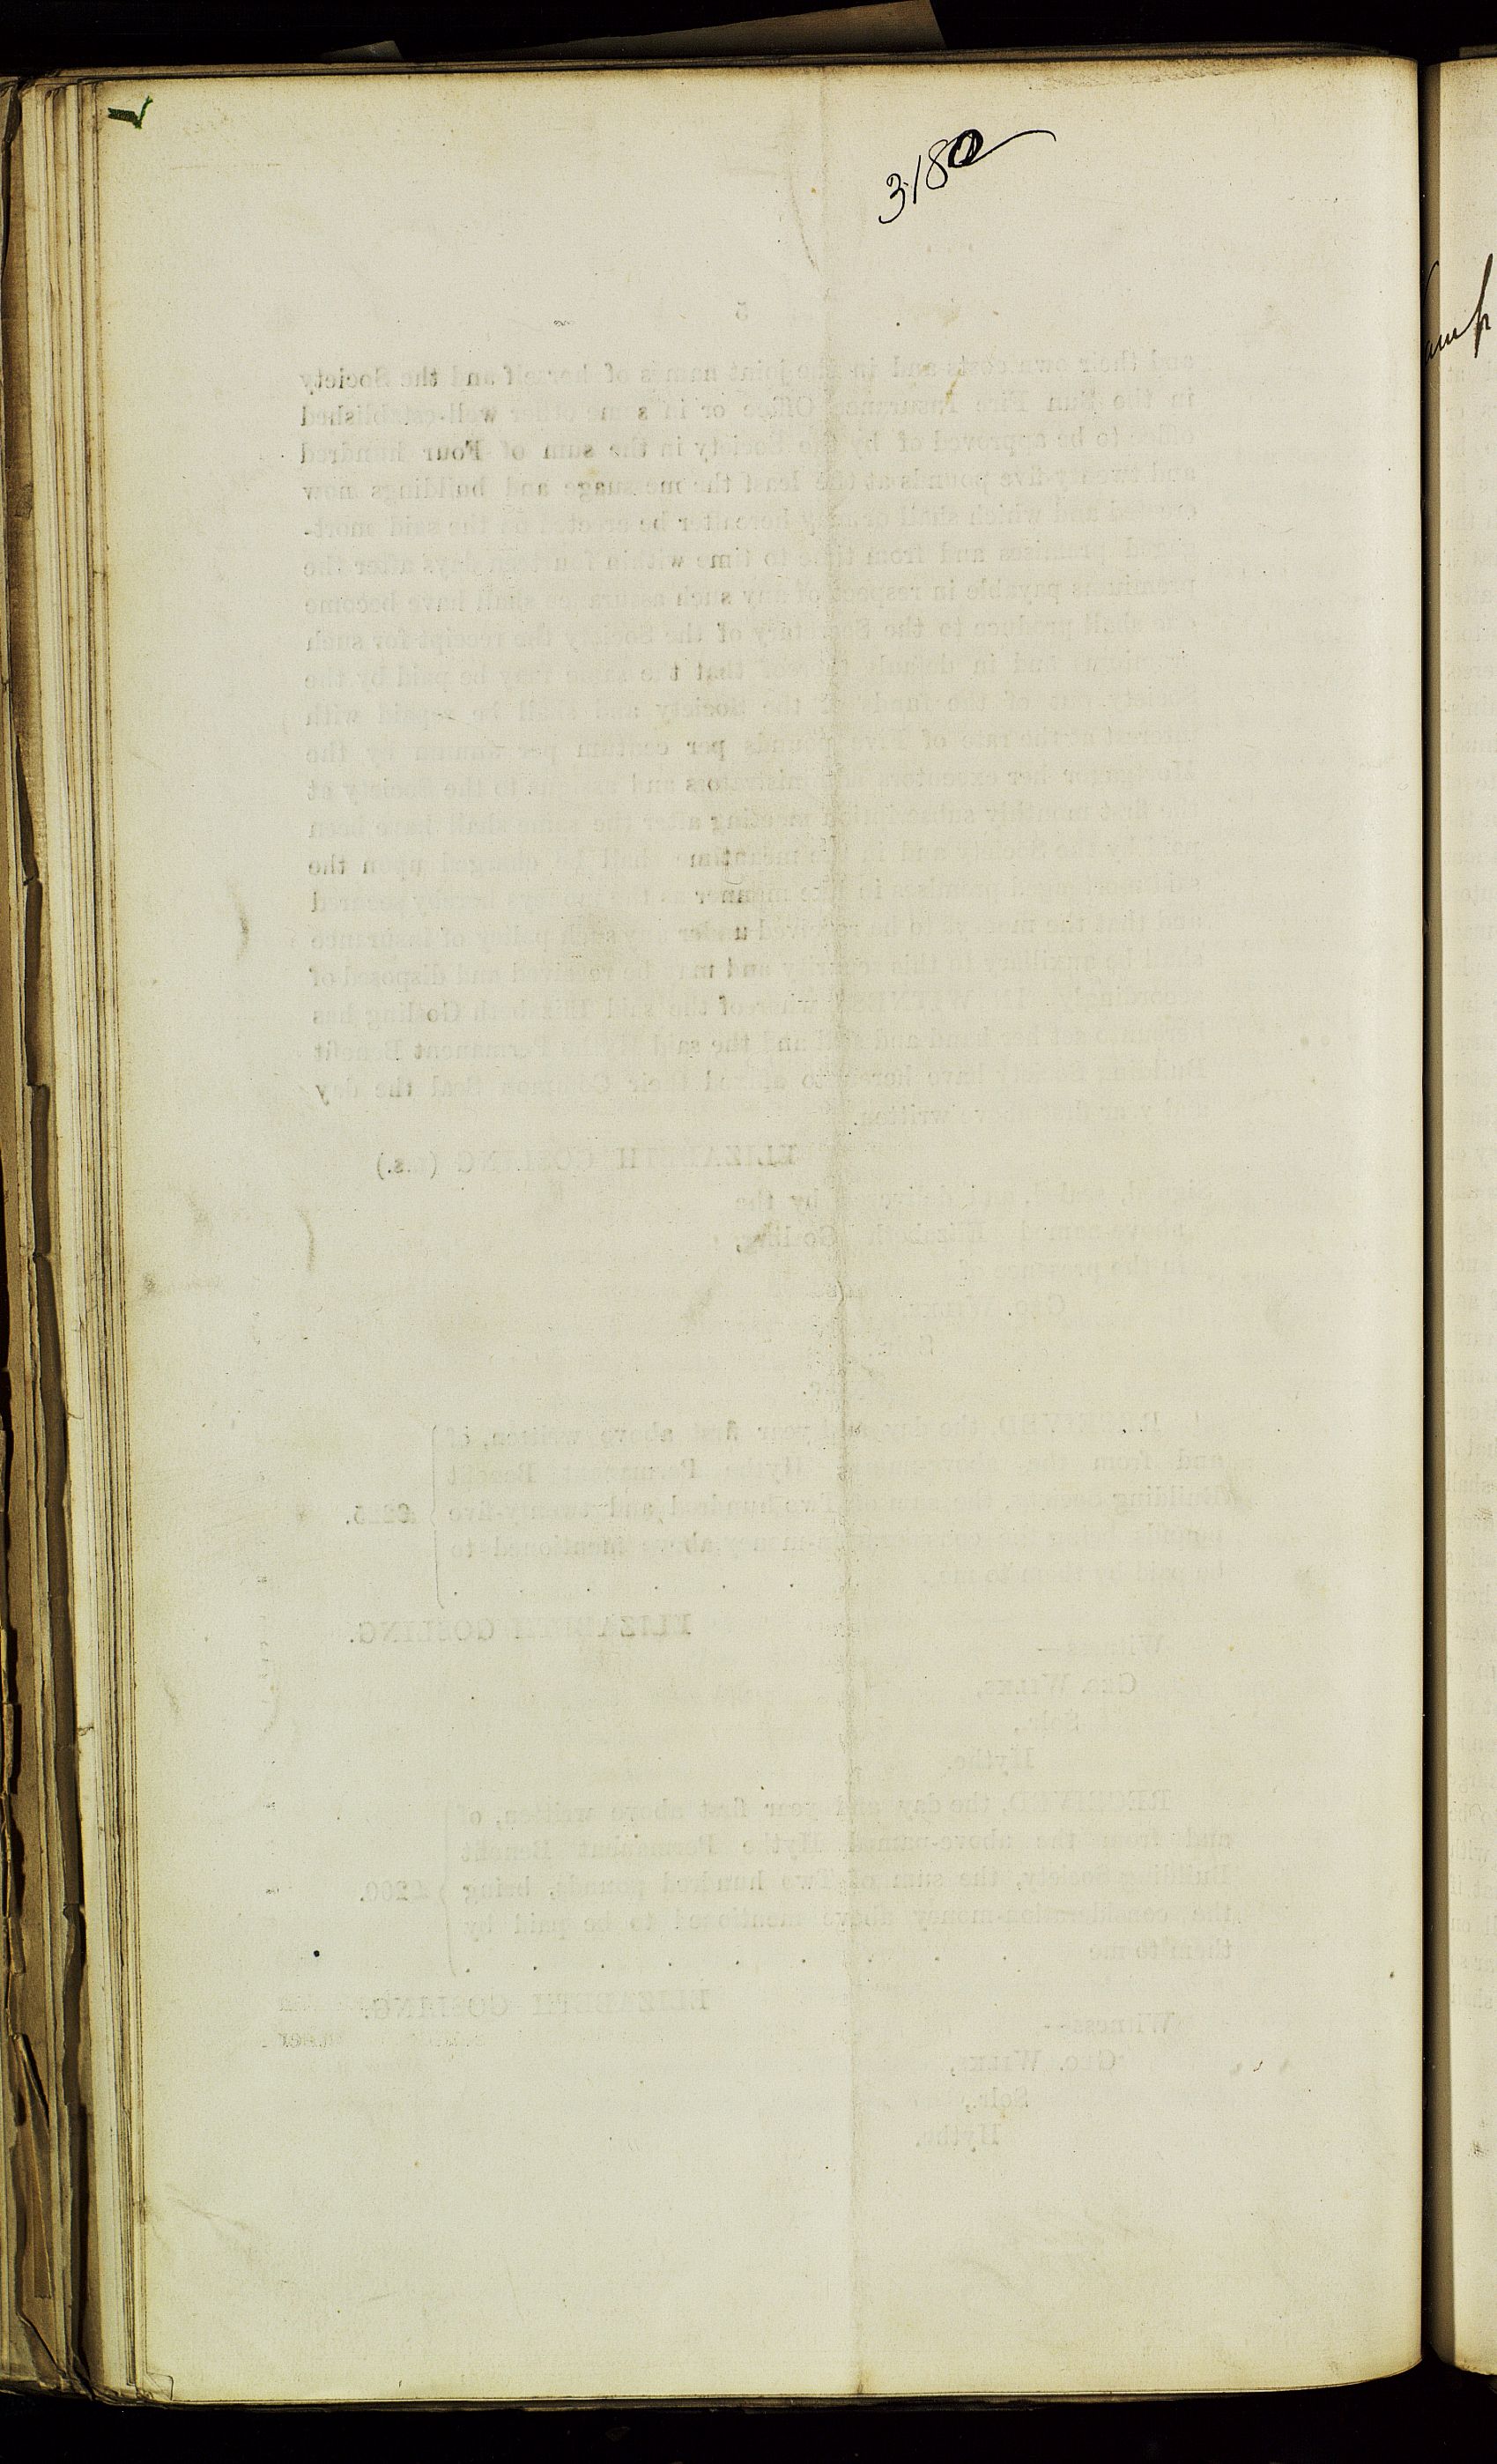 3180
5
and their own costs and in the joint names of herself and the Society
in the Sun Fire Insurance Office or in some other well-established
office to be approved of by the Society in the sum of Four hundred
and twenty-five pounds at the least the messuage and buildings now
erected and which shall or may hereafter be erected on the said mort-
gaged premises and from time to time within fourteen days after the
premiums payable in respect of any such assurance shall have become
due shall produce to the Secretary of the Society the receipt for such
and in default thereof that the same may be paid by the
Society out of the funds of the Society and shall be repaid with
interest at the rate of Five pounds per centum per annum by the
Mortgagor her executors administrators and assigns to the Society at
the first monthly subscription meeting after the same shall have been
paid by the Society and in the meantime shall be charged upon the
said mortgaged premises in like manner as the moneys hereby secured
and that the moneys to be received under any such policy of insurance
shall be auxiliary to this security and may be received and disposed of
accordingly. IN WITNESS whereof the said Elizabeth Gosling has
hereunto set her hand and seal and the said Hythe Permanent Benefit
Building Society have hereunto affixed their Common Seal the day
and year first above written.
ELIZABETH GOSLING (L.S.)
Signed, sealed, and delivered by the
above-named Elizabeth Gosling,
in the presence of
Geo. Wilks,
Solr.,
RECEIVED, the day and year first above written, of
and from the above-named Hythe Permanent Benefit
Building Society, the sum of Two hundred and twenty-five
pounds being the consideration-money above mentioned to
be paid by them to me. £225.
ELIZABETH GOSLING.
Witness—
Geo. Wilks,
Solr.,
Hythe.
RECEIVED, the day and year first above written, of
and from the above-named Hythe Permanent Benefit
Building Society, the sum of Two hundred pounds, being
the consideration-money above mentioned to be paid by
them to me £200.
ELIZABETH GOSLING.
Witness—
Geo. Wilks,
Solr.,
Hythe.